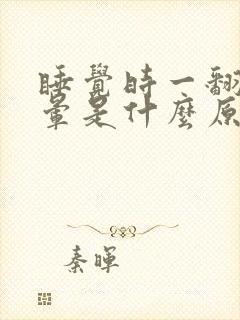 睡覺時一翻
暈是什麼原
秦暉